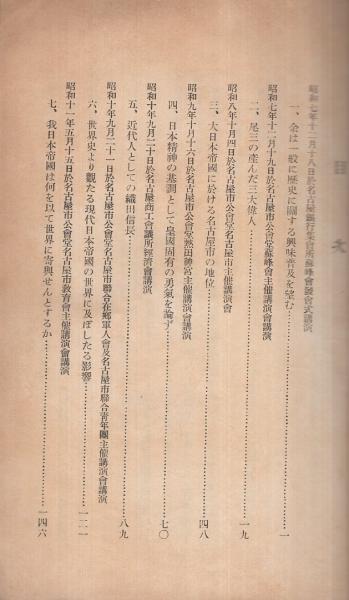 目次
昭和七年十二月十八日於名古屋銀行集會所蘇峰會發會式講演
一、余は一般に歷史に關する興味普及を望む……一
昭和七年十二月十九日於名古屋市公會堂蘇峰會主催講演會講演
二、尾三の產んだ三大偉人……一九
昭和八年十月四日於名古屋市公會堂名古屋市主催講演會
三、大日本帝國に於ける名古屋市の地位……四八
昭和九年十月十六日於名古屋市公會堂熱田神宮主催講演會講演
四、日本精神の基調として皇國固有の勇氣を論ず……七〇
昭和十年九月二十日於名古屋商工會議所經濟會講演
五、近代人としての織田信長……八九
昭和十年九月二十一日於名古屋市公會堂名古屋市聯合在鄕軍人會及名古屋市聯合靑年團主催講演會講演
六、世界史より觀たる現代日本帝國の世界に及ぼしたる影響……一二一
昭和十一年五月十五日於名古屋市公會堂名古屋市敎育會主催講演會講演
七、我日本帝國は何を以て世界に寄與せんとするか……一四六